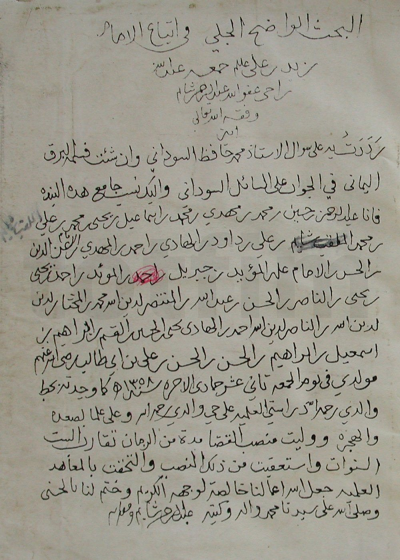 البحث الواضح الجلي في اتباع الامام
زيد بن علي علم جمعه عبدالله
راجي عفو الله عبدالرحمن شايم
وفقه الله تعالى
آمين
رددت به على سؤال الاستاذ محمد حافظ السوداني وان شئت فسلمه البرق
اليماني في الجواب على المسائل السوداني واليك نسب جامع هذه النبذه
فانا عبدالرحمن بن حسين بن محمد بن مهدي بن محمد بن اسماعيل بن يحيى بن محمد بن علي
بن محمد الملقب شايم بن علي بن داود بن الهادي بن احمد بن المهدي بن عز الدين
بن الحسن بن الامام علي المؤيد بن جبريل بن احمد بن المؤيد بن احمد بن يحيى
بن يحيى بن الناصر بن الحسن بن عبدالله بن المنتصر لدين الله محمد بن المختار لدين
لدين الله بن الناصر لدين الله احمد بن الهادي يحيى بن الحسين بن القسم بن ابراهيم بن
اسمعيل بن ابراهيم بن الحسن بن الحسن بن علي بن ابي طالب رضي الله عنهم
مولدي في يوم الجمعه ثاني عشر جمادى الآخره سنة ١٣٥٨ه كما وجدته بخط
والدي رحمه الله دراستي العلميه على حي والدي رحمه الله وعلى علما صعده
والهجره ووليت منصب القضا مدة من الزمان تقارب الست
السنوات واستعفيت من ذلك المنصب والتحقت بالمعاهد
العلميه جعل الله اعمالنا خالصة لوجهه الكريم وختم لنا بالحسنى
وصلى الله على سيدنا محمد واله وكتبه عبدالرحمن شايم